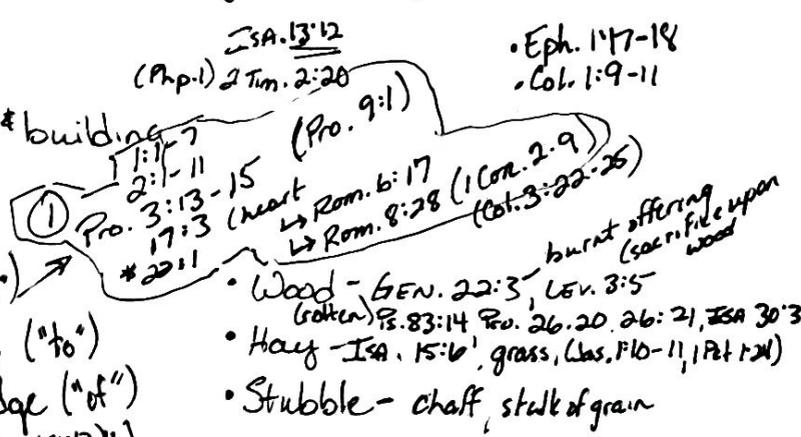 ISA. 13:12
(Php. 1) 2 Tim. 2:20
• Eph. 1:17-18
• Col. 1:9-11
* building
1:1-7
2:1-11
(Pro. 9:1)
① Pro. 3:13-15
17:3 (heart
* 22:1
↳ Rom. 6:17
↳ Rom. 8:28 (1 Cor. 2:9)
(Col. 3:22-25)
• Wood - GEN. 22:3, LEV. 3:5
burnt offering
(sacrifice upon
wood
(rotten) Ps. 83:14 Pro. 26.20, 26:21, ISA 30:3
• Hay - ISA. 15:6, grass, (Jas. 1:10-11, 1 Pet 1:24)
• Stubble - chaff, stalk of grain
("to")
dge ("of")